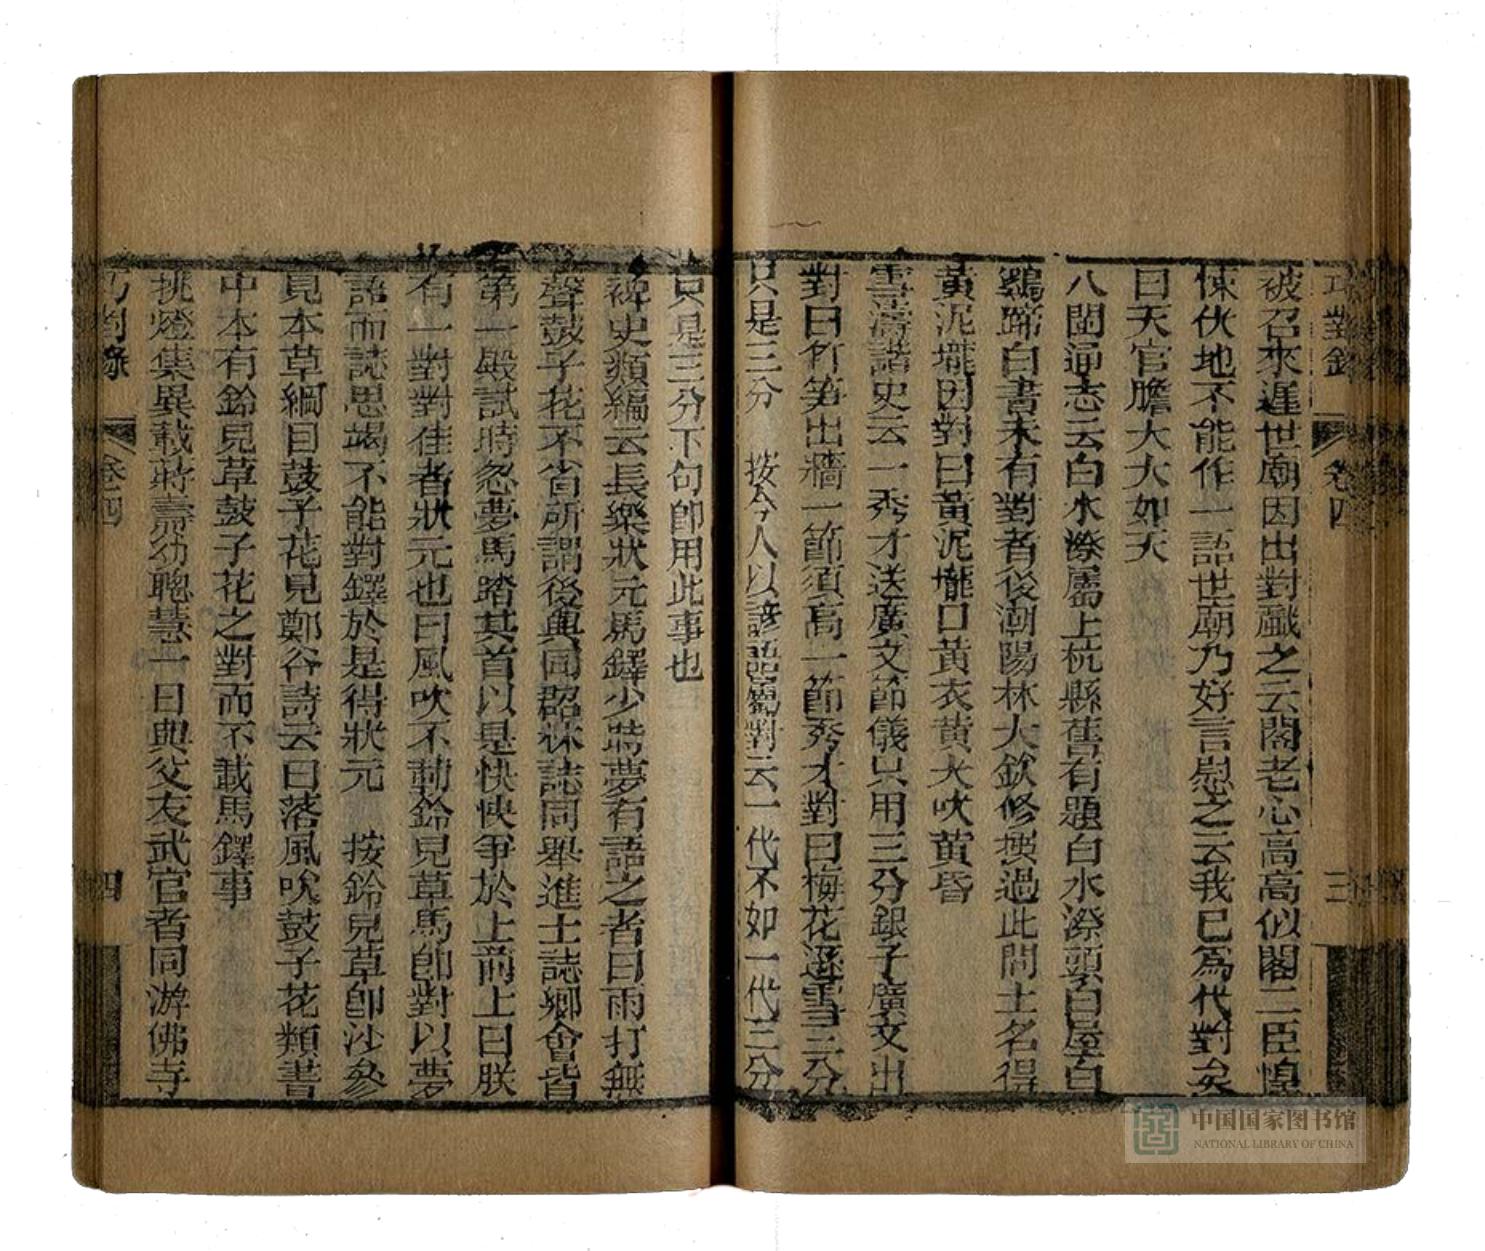 巧對錄 卷四 三
被召來遲世廟因出對戲之云閣老心高高似閣二臣惶
悚伏地不能作一語世廟乃好言慰之云我已爲代對矣
曰天官膽大大如天
八閩通志云白水漈屬上杭縣舊有題白水漈頭白屋白
鷄啼白晝未有對者後潮陽林大欽修撰過此問土名得
黃泥壠因對曰黃泥壠口黃衣黃犬吠黃昏
雪濤諧史云一秀才送廣文節儀只用三分銀子廣文出
對曰竹笋出牆一節須高一節秀才對曰梅花遜雪三分
只是三分 按今人以諺語屬對云一代不如一代三分
只是三分下句卽用此事也
稗史類編云長樂狀元馬鐸少時夢有語之者曰雨打無
聲鼓子花不省所謂後與同郡林誌同舉進士誌鄉會皆
第一殿試時忽夢馬踏其首以是怏怏爭於上前上曰朕
有一對對佳者狀元也曰風吹不動鈴兒草馬卽對以夢
語而誌思竭不能對鐸於是得狀元 按鈴兒草卽沙參
見本草綱目鼓子花見鄭谷詩云曰落風吹鼓子花類書
中本有鈴兒草鼓子花之對而不載馬鐸事
挑燈集異載蔣燾幼聰慧一日與父友武官者同游佛寺
巧對錄 卷四 四
中国国家图书馆
NATIONAL LIBRARY OF CHINA